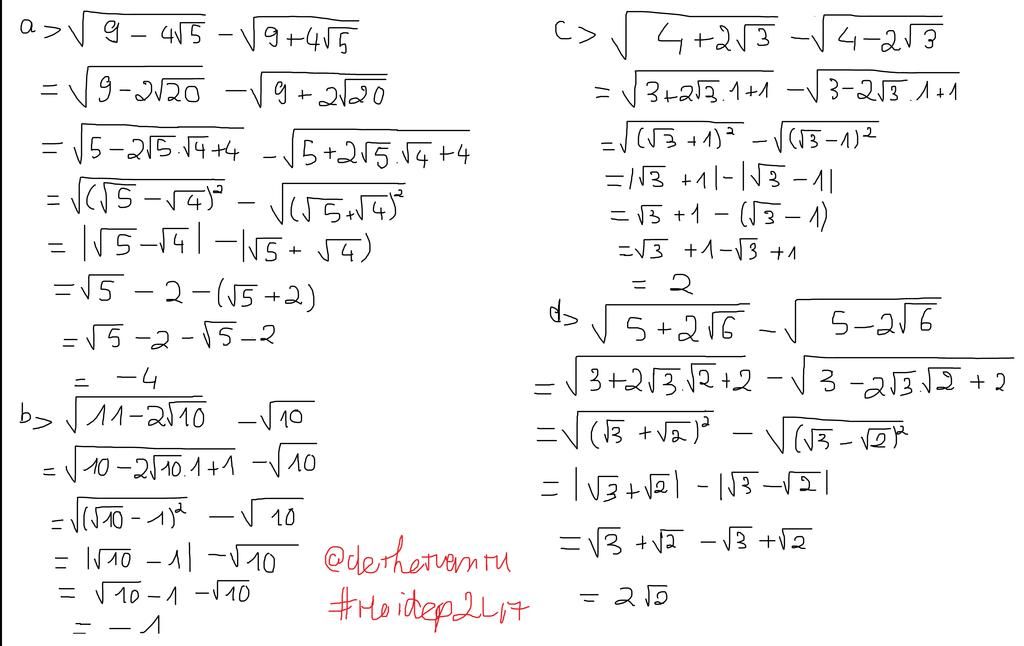 a> √(9 - 4√5) - √(9+4√5)
= √(9-2√20) - √(9+2√20)
= √(5-2√5.√4+4) - √(5+2√5.√4+4)
= √((√5-√4)²) - √((√5+√4)²)
= |√5-√4| - |√5+ √4)
= √5 - 2 - (√5+2)
= √5 -2 -√5-2
= -4
b> √(11-2√10) - √10
= √(10-2√10.1+1) - √10
= √((√10-1)²) - √10
= |√10 - 1| - √10
= √10-1 -√10
= -1
c> √(4+2√3) - √(4-2√3)
= √(3+2√3.1+1) - √(3-2√3.1+1)
= √((√3+1)²) - √((√3-1)²)
= |√3 +1|-|√3 -1|
= √3 +1 - (√3-1)
= √3 +1-√3 +1
= 2
d> √(5+2√6) - √(5-2√6)
= √(3+2√3.√2+2) - √(3-2√3.√2+2)
= √((√3+√2)²) - √((√3-√2)²)
= |√3+√2| - |√3-√2|
= √3 +√2 -√3 +√2
= 2√2